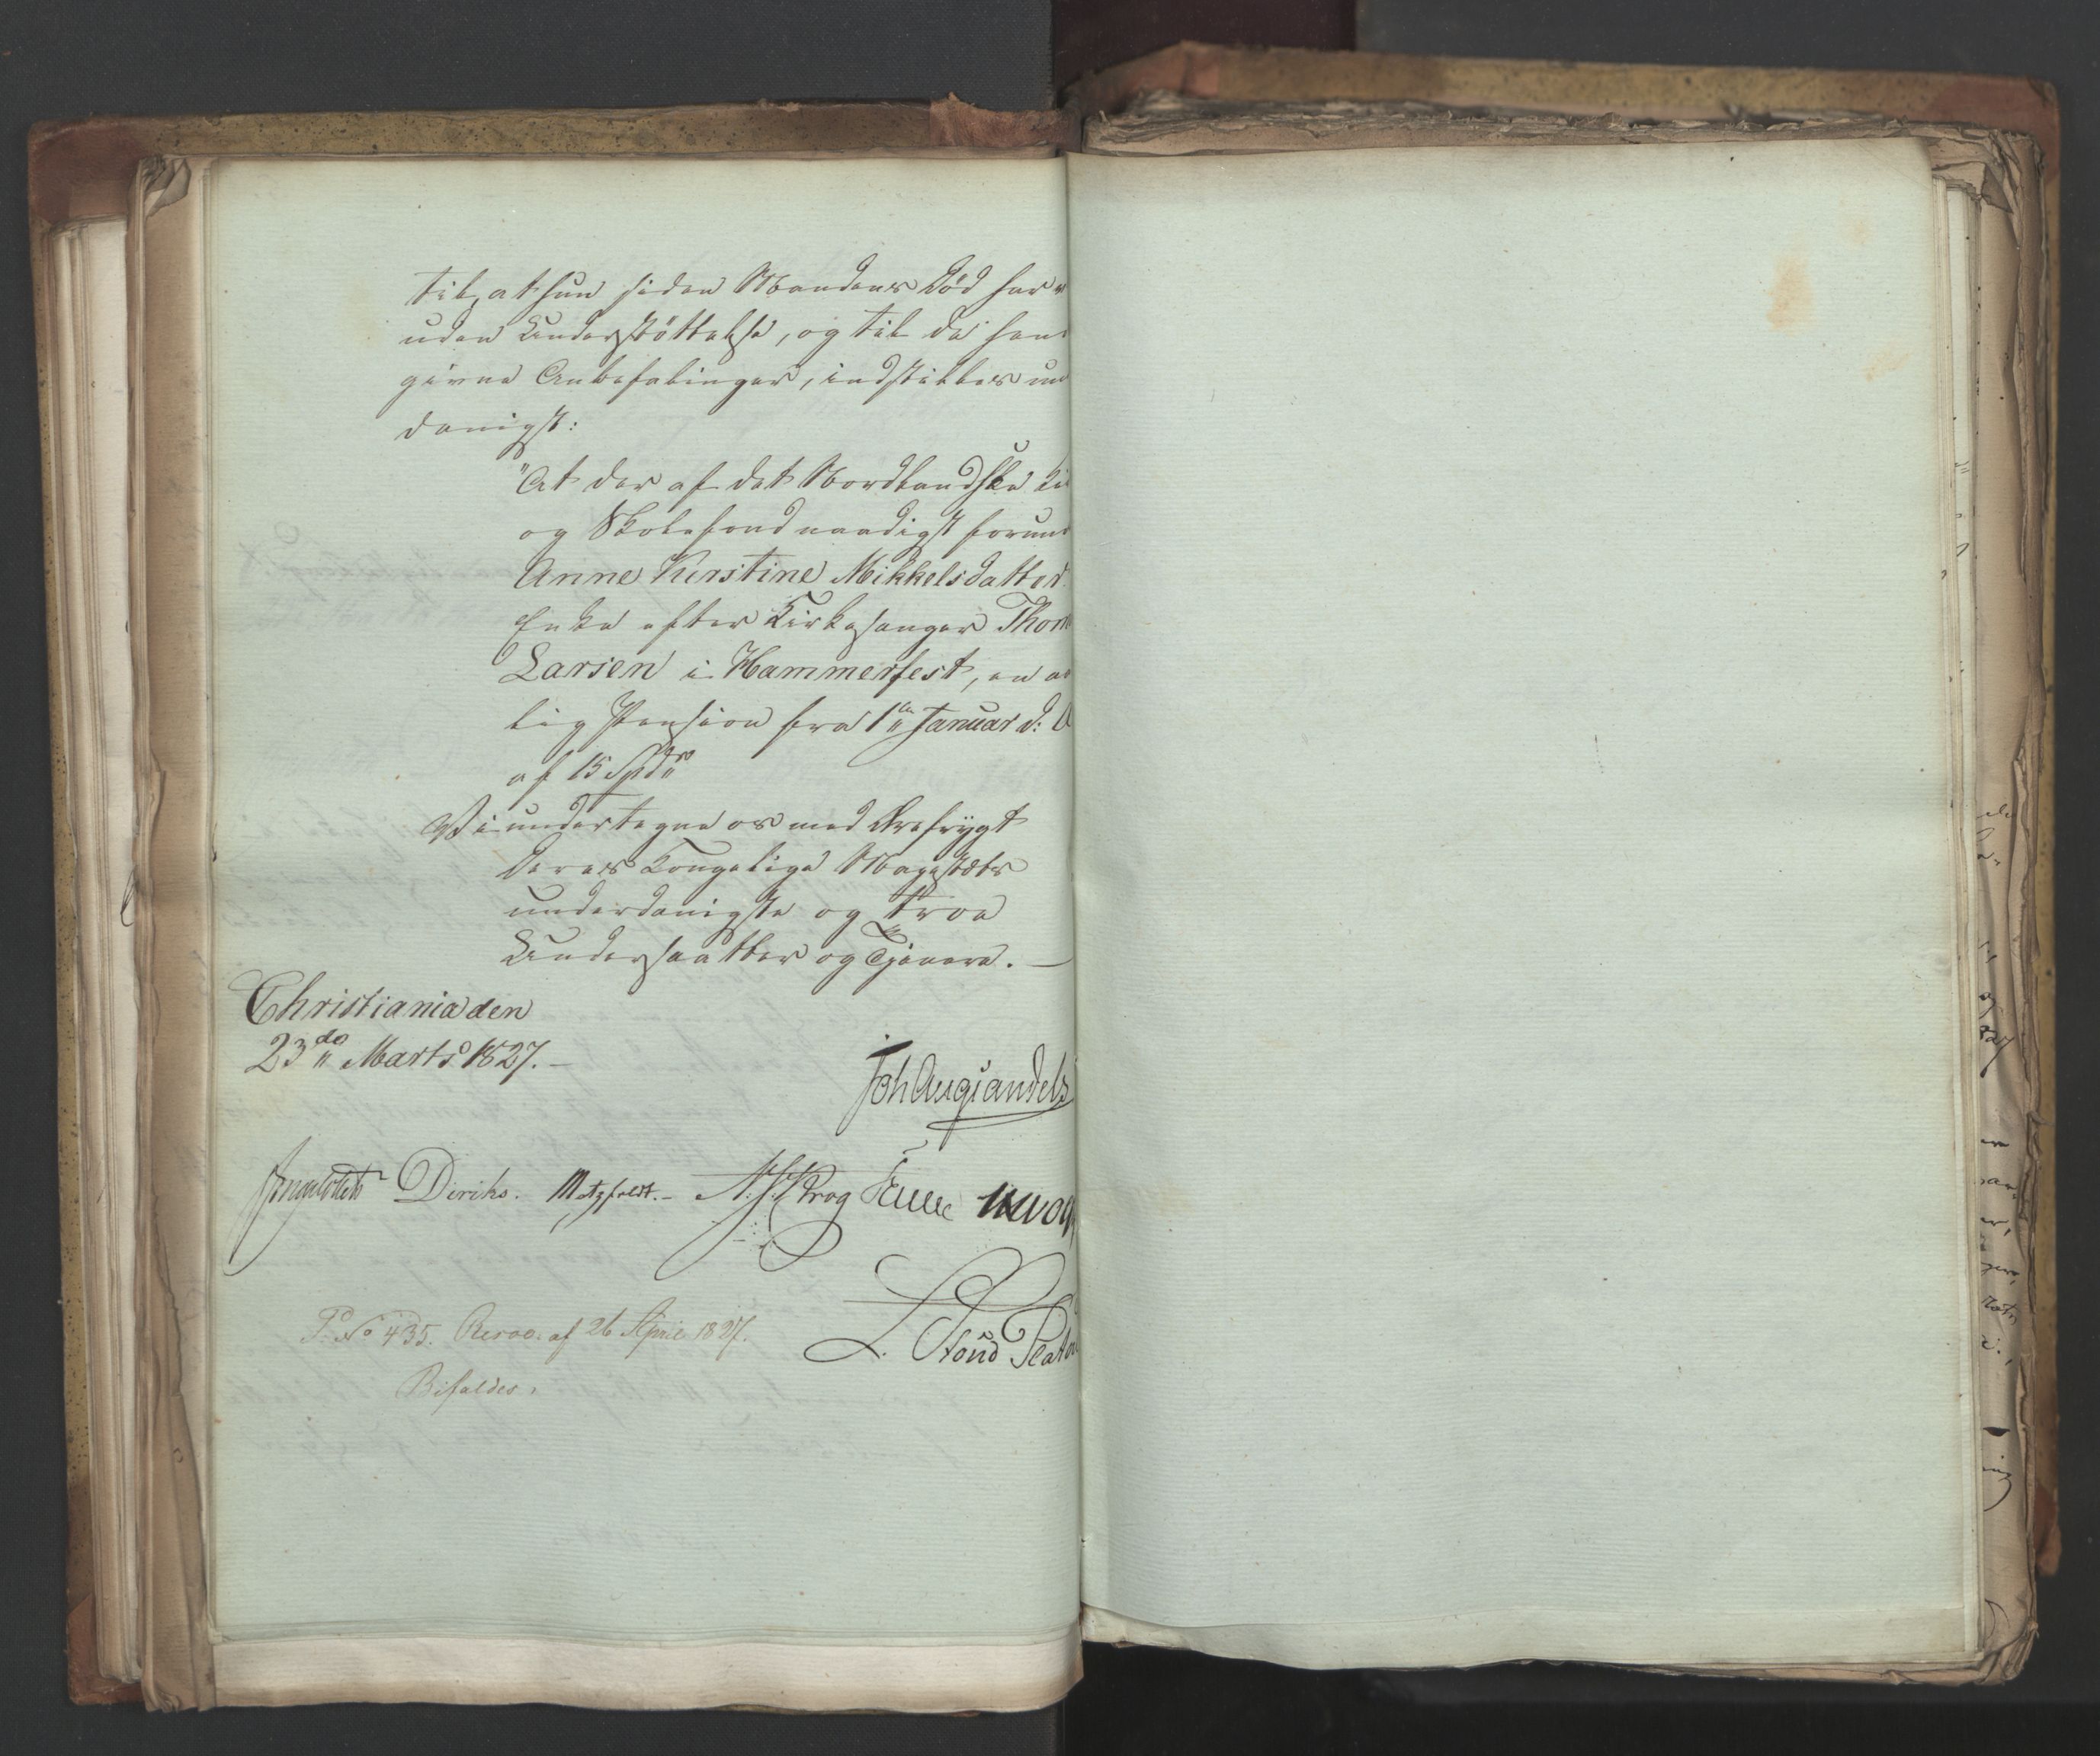 til, at hun siden Mandens Död har
uden Understöttelse, og til de hen
givne Anbefalinger, indstilles un
danigst:
"At der af det Nordlandske Ki
og Skolefond naadigst forun
Anne Kirstine Mikkelsdatter
Enke efter Kirkesanger Thom
Larsen i Hammerfest, en aa
lig Pension fra 1ste Januar d: A
af 15 Spdr
Vi undertegne os med Ærefrygt
Deres Kongelige Majestæts
underdanigste og troe
Undersaatter og Tjenere. —
Christiania den
23de Marts 1827. –
Joh Aug Sandels
Diriks. Motzfeldt. – Krog
L. Stoud Platou
P. No 435. Resol. af 26 April 1827.
Bifaldes.